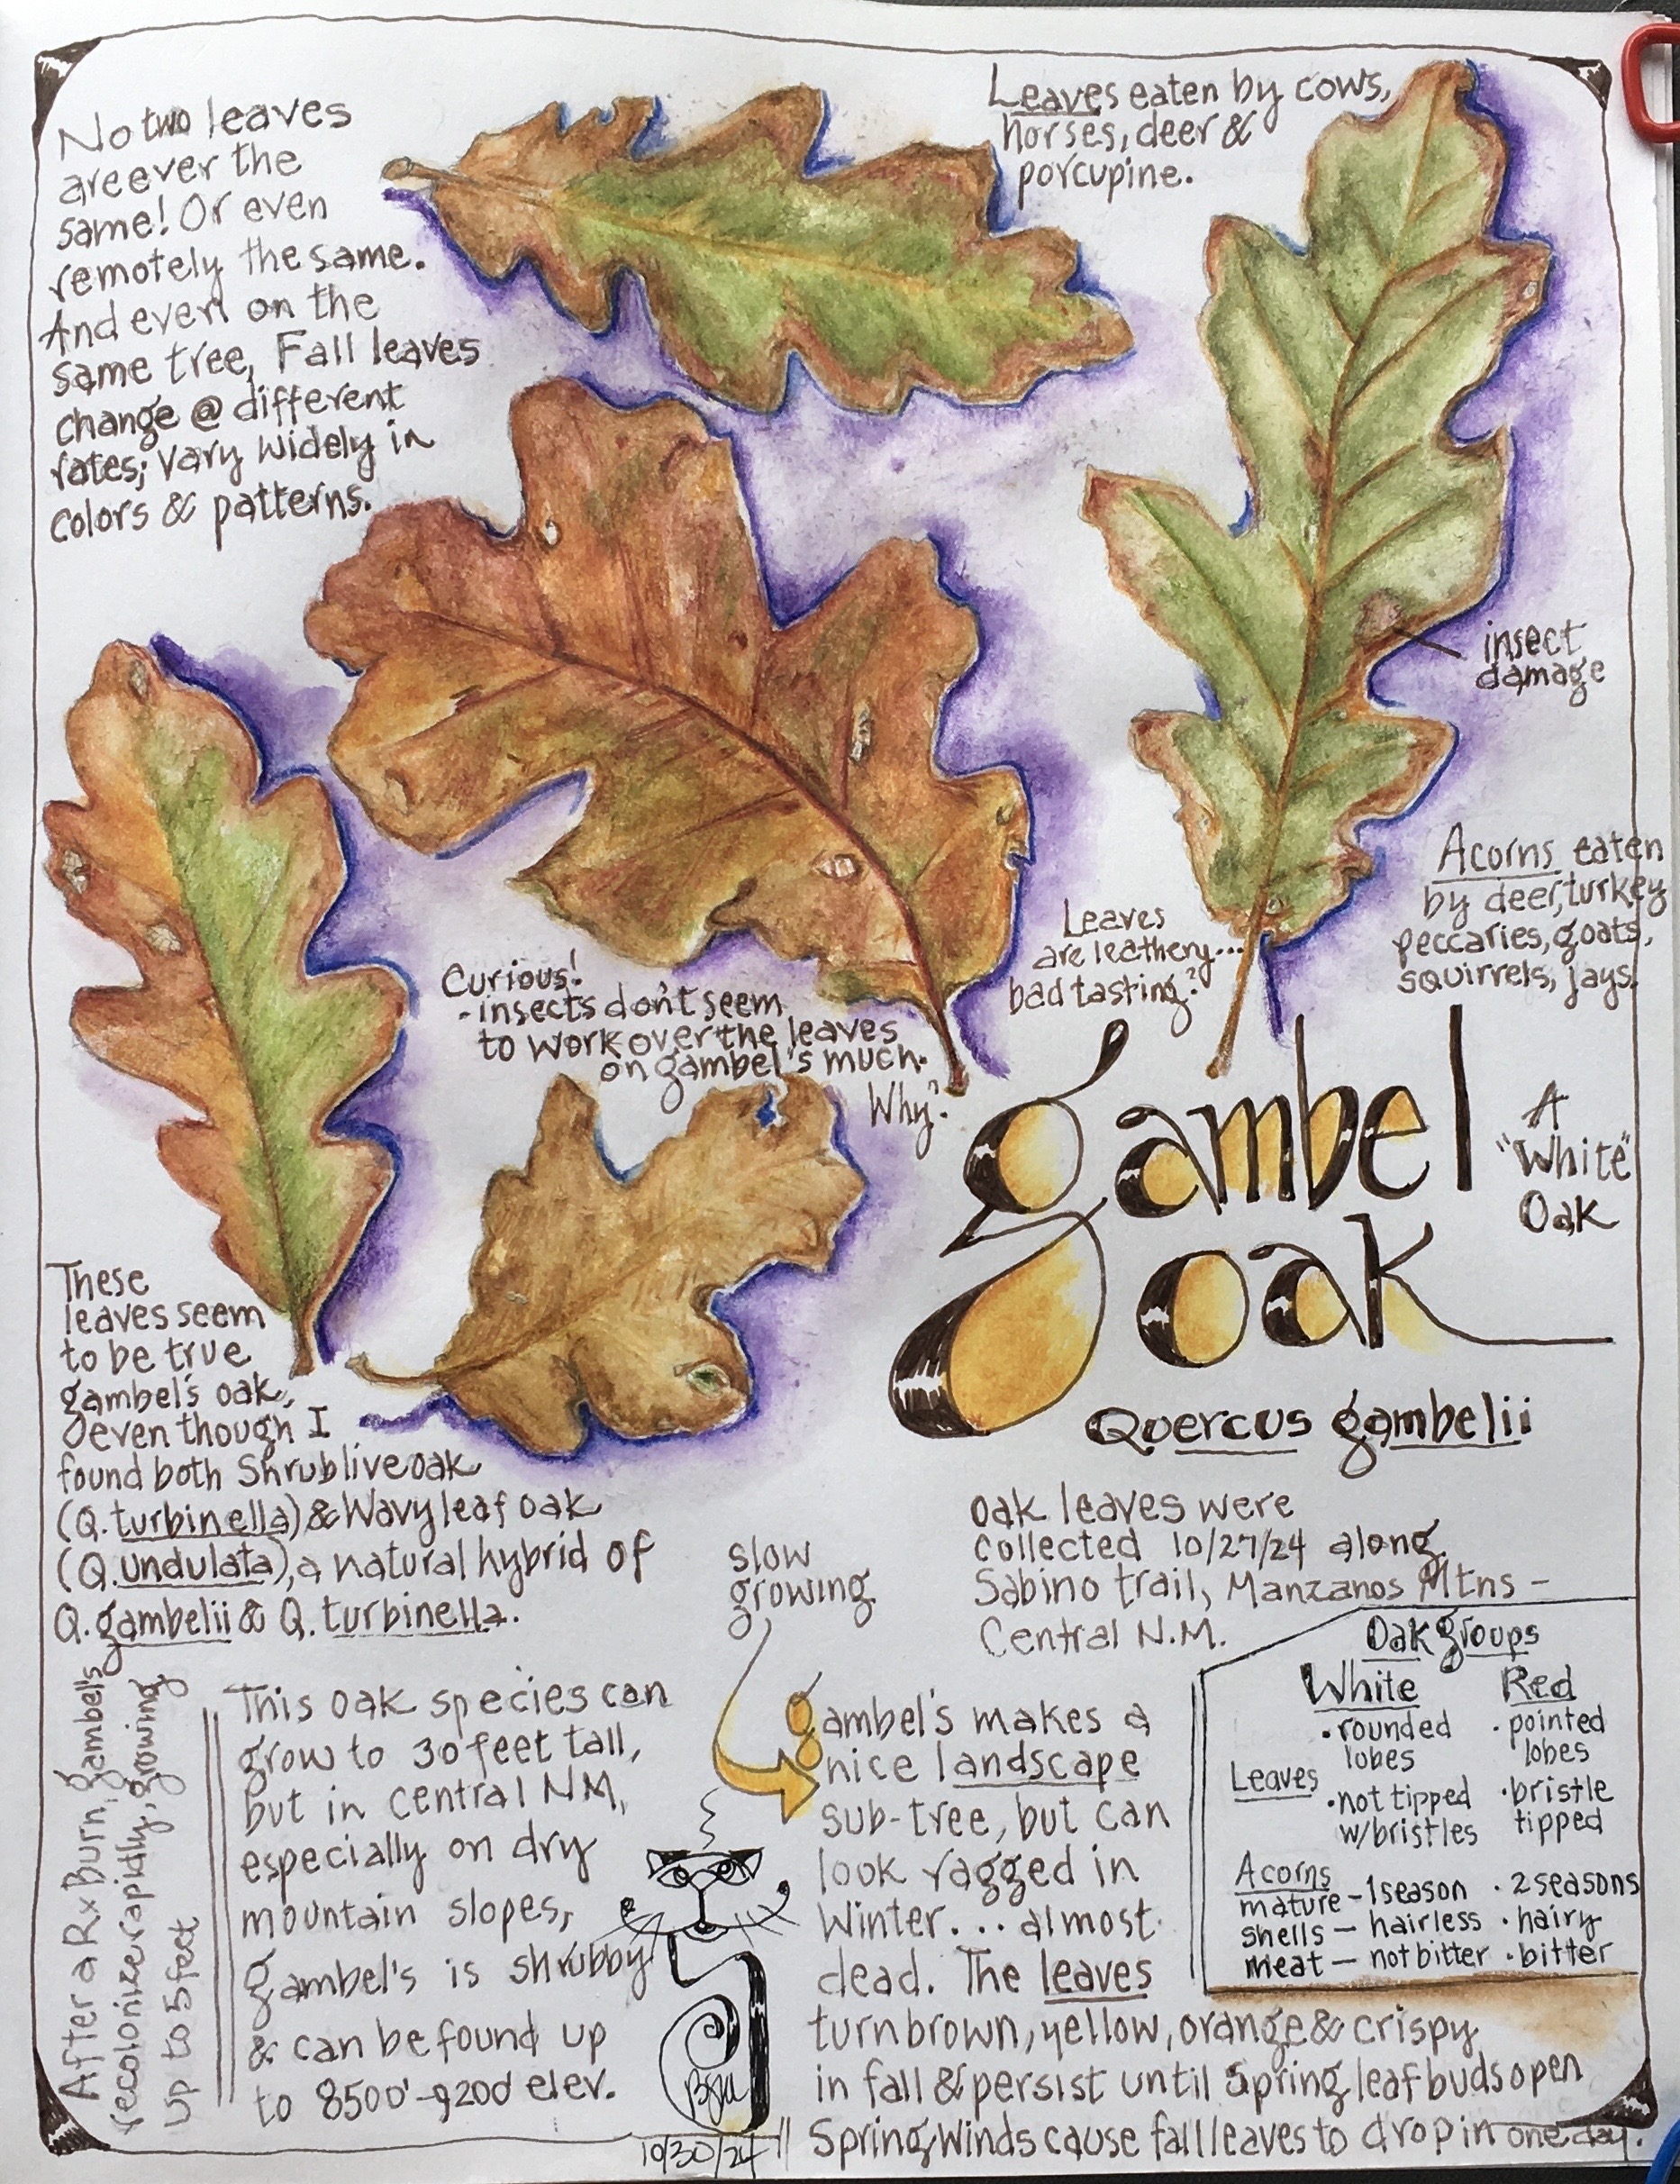 No two leaves
are ever the
same! Or even
remotely the same.
And even on the
same tree, Fall leaves
change @ different
rates; vary widely in
colors & patterns.
Leaves eaten by cows,
horses, deer &
porcupine.
insect
damage
Acorns eaten
by deer, turkey
peccaries, goats,
squirrels, jays.
Leaves
are leathery...
bad tasting?
Curious!
- insects don't seem
to work over the leaves
on gambel's much.
Why?
gambel
oak
A
"White"
Oak
Quercus gambelii
These
leaves seem
to be true
gambel's oak,
even though I
found both Shrub live oak
(Q. turbinella) & Wavyleaf oak
(Q. undulata), a natural hybrid of
Q. gambelii & Q. turbinella.
oak leaves were
collected 10/27/24 along
Sabino trail, Manzanos Mtns -
Central N.M.
slow
growing
After a Rx Burn, gambel's
recolonize rapidly, growing
up to 5 feet
This oak species can
grow to 30 feet tall,
but in central NM,
especially on dry
mountain slopes,
gambel's is shrubby
& can be found up
to 8500'-9200' elev.
gambel's makes a
nice landscape
sub-tree, but can
look ragged in
Winter... almost
dead. The leaves
turn brown, yellow, orange & crispy
in fall & persist until Spring leaf buds open
Spring winds cause fall leaves to drop in one day.
Oak groups
White Red
Leaves
• rounded lobes • pointed lobes
• not tipped w/bristles • bristle tipped
Acorns
mature - 1 season • 2 seasons
shells - hairless • hairy
meat - not bitter • bitter
10/30/24